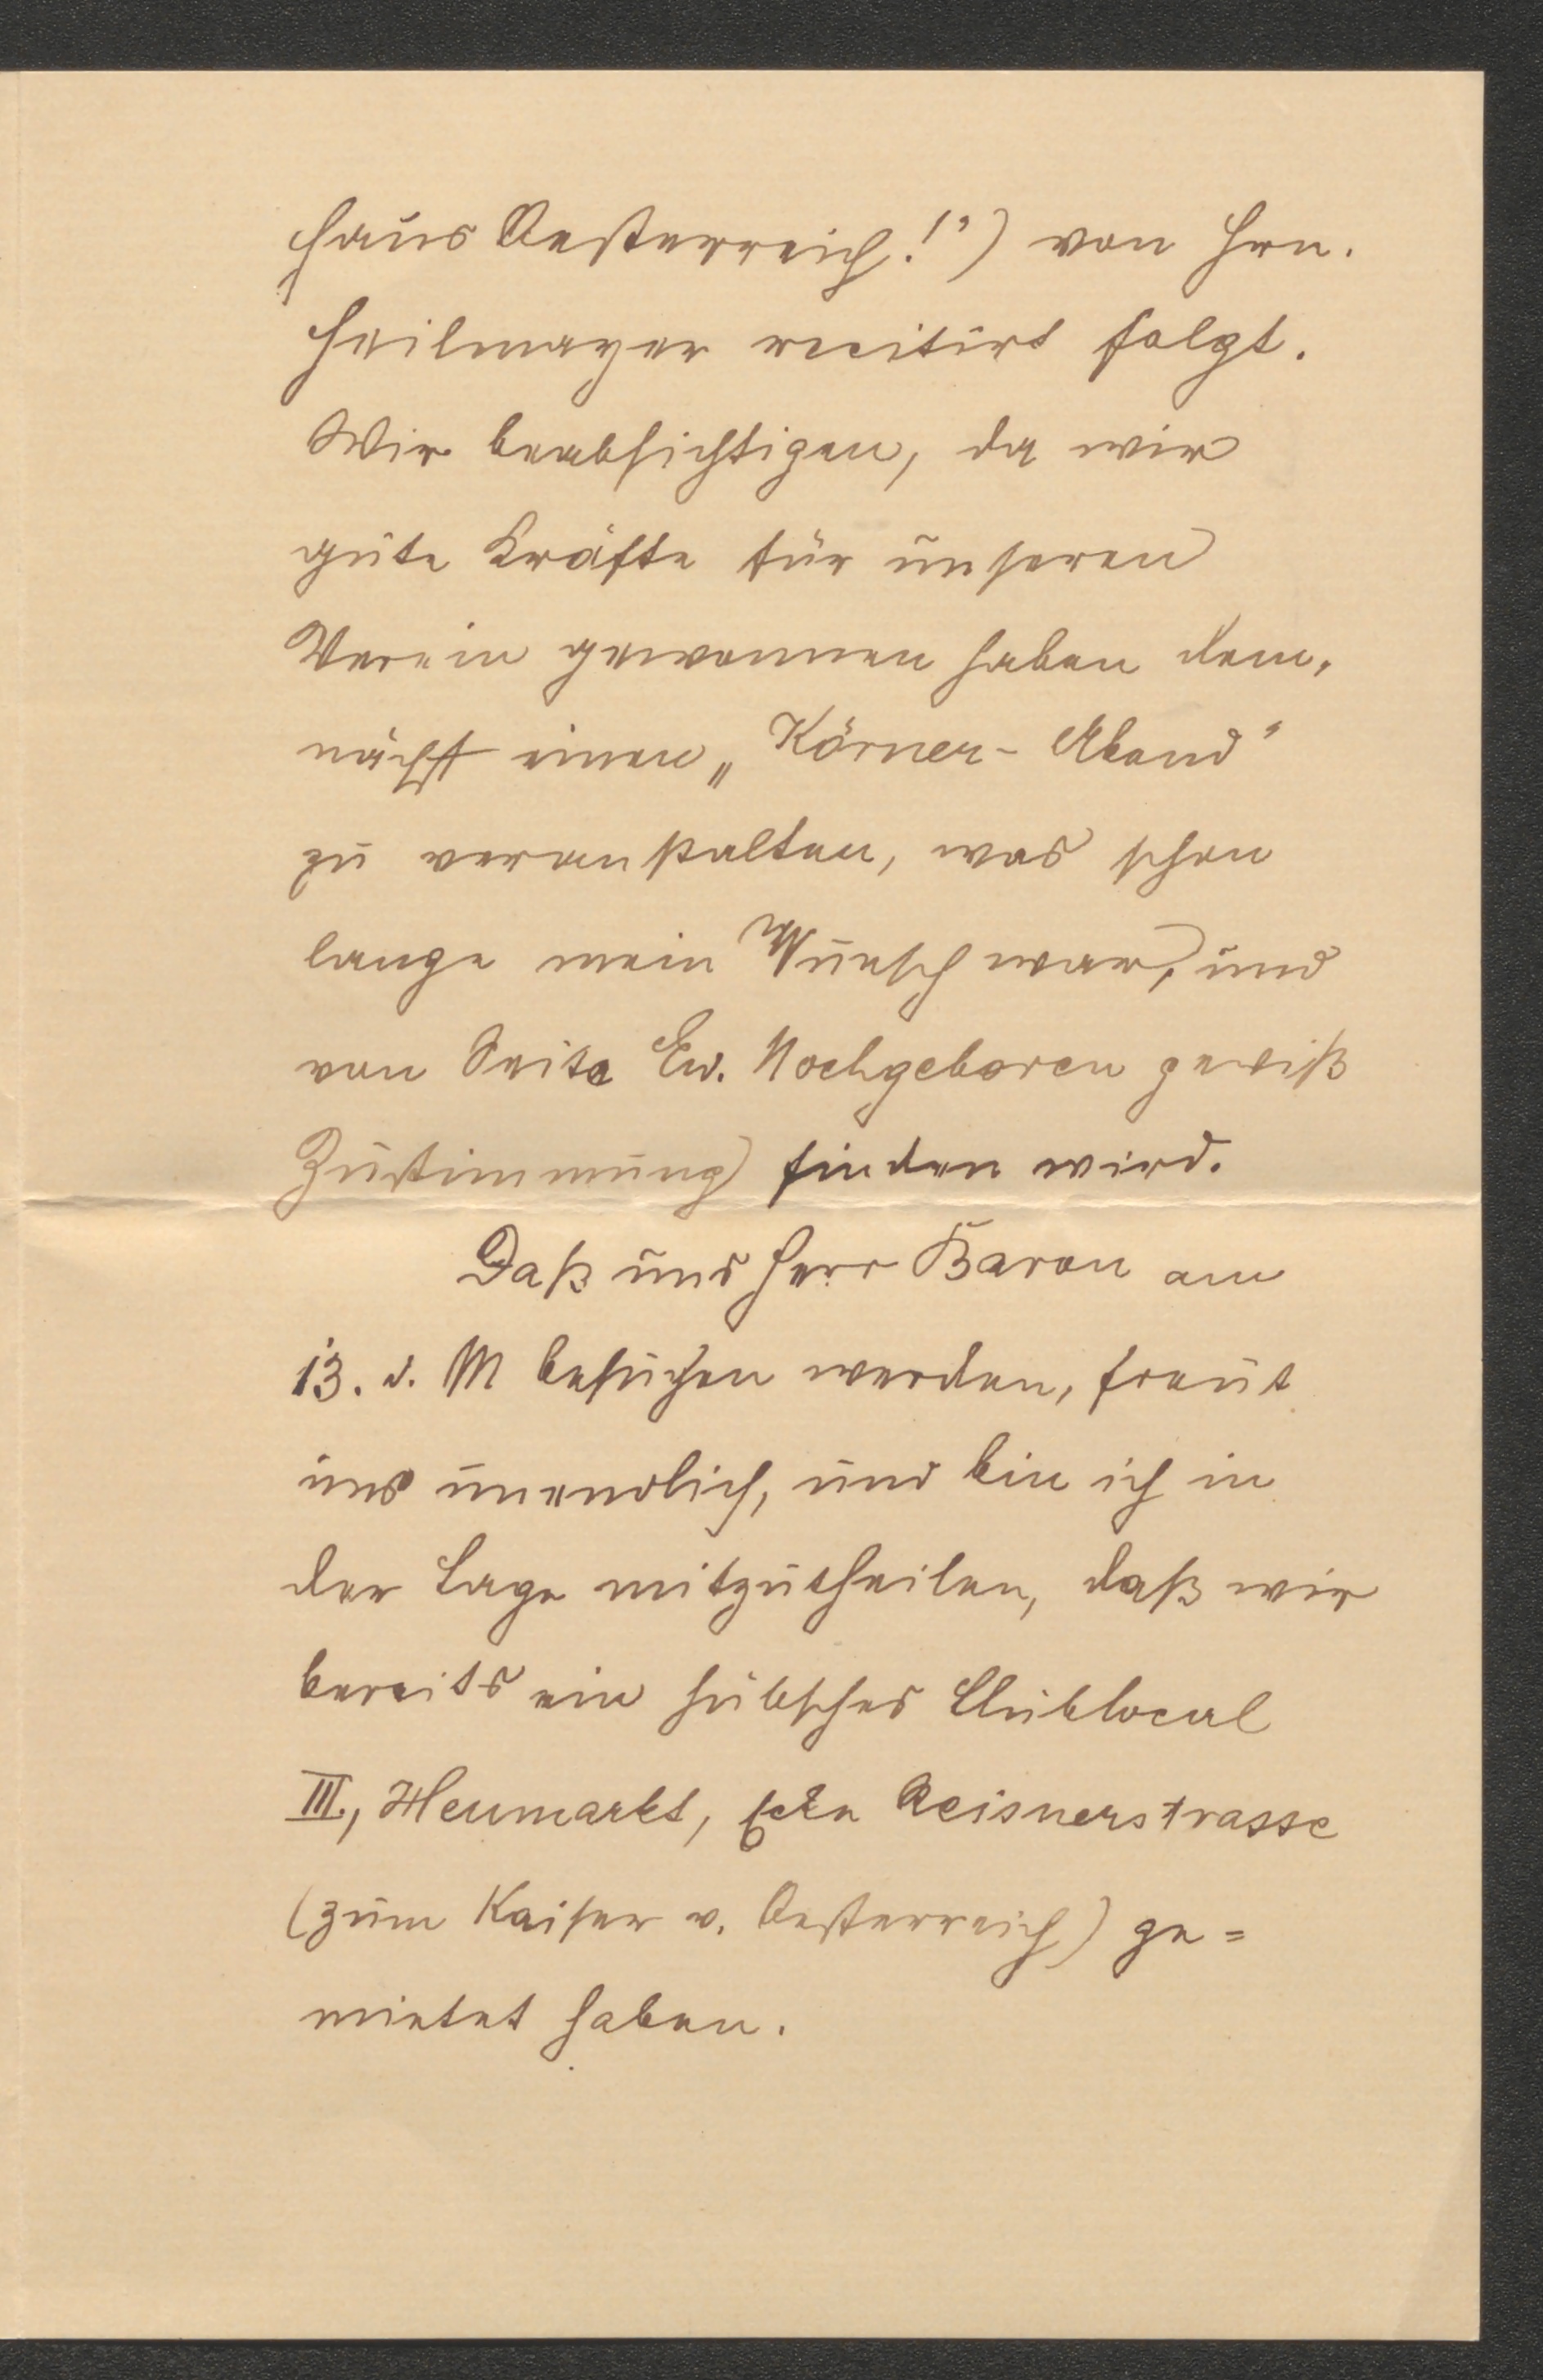 Haus Oesterreich!") von Hrn.
Heilmayer recitirt folgt.
Wir beabsichtigen, da wir
gute Kräfte für unseren
Verein gewonnen haben dem-
nächst einen „Körner-Abend"
zu veranstalten, was schon
lange mein Wunsch war, und
von Seite Ew. Hochgeboren gewiß
Zustimmung finden wird.
Daß uns Herr Baron am
13. d. M besuchen werden, freut
uns unendlich, und bin ich in
der Lage mitzutheilen, daß wir
bereits ein hübsches Clublocal
III., Heumarkt, Ecke Reisnerstrasse
(zum Kaiser v. Oesterreich) ge=
mietet haben.